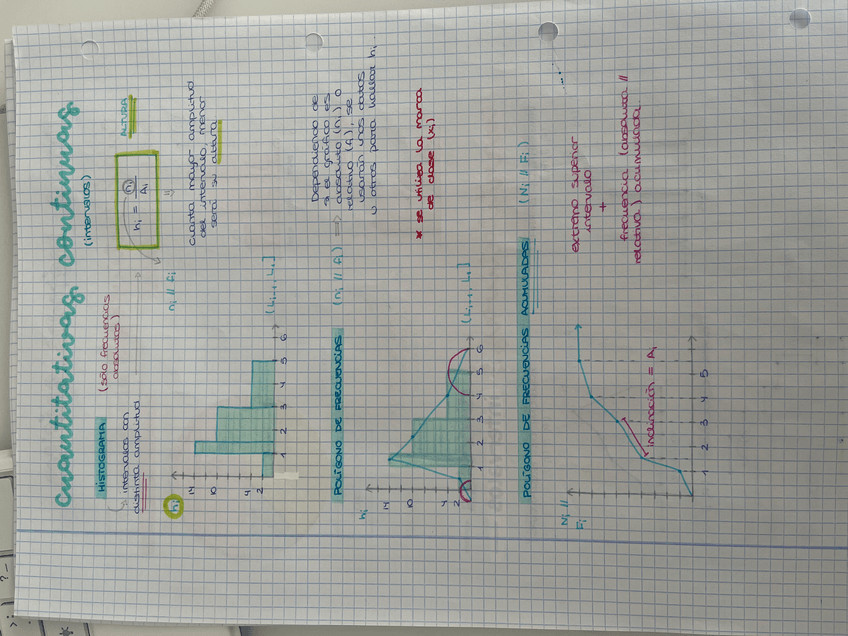 cuantitativas continuas
(intervalos)
HISTOGRAMA
(sólo frecuencias
absolutas)
intervalos con
distinta amplitud
hi = ni / Ai
ALTURA
ni // fi
cuanta mayor amplitud
del intervalo, menor
será su altura
hi
14
10
4
2
1 2 3 4 5 6
(Li-1, Li]
POLÍGONO DE FRECUENCIAS (ni // fi) ⇒
Dependiendo de
si el gráfico es
absoluta (ni) o
relativo (fi), se
usarán unos datos
u otros para hallar hi
hi
14
10
4
2
1 2 3 4 5 6
(Li-1, Li]
* se utiliza la marca
de clase (xi)
POLÍGONO DE FRECUENCIAS ACUMULADAS (Ni // Fi)
Ni //
Fi
1 2 3 4 5
inclinación = Ai
extremo superior
intervalo
+
frecuencia (absoluta //
relativa) acumulada